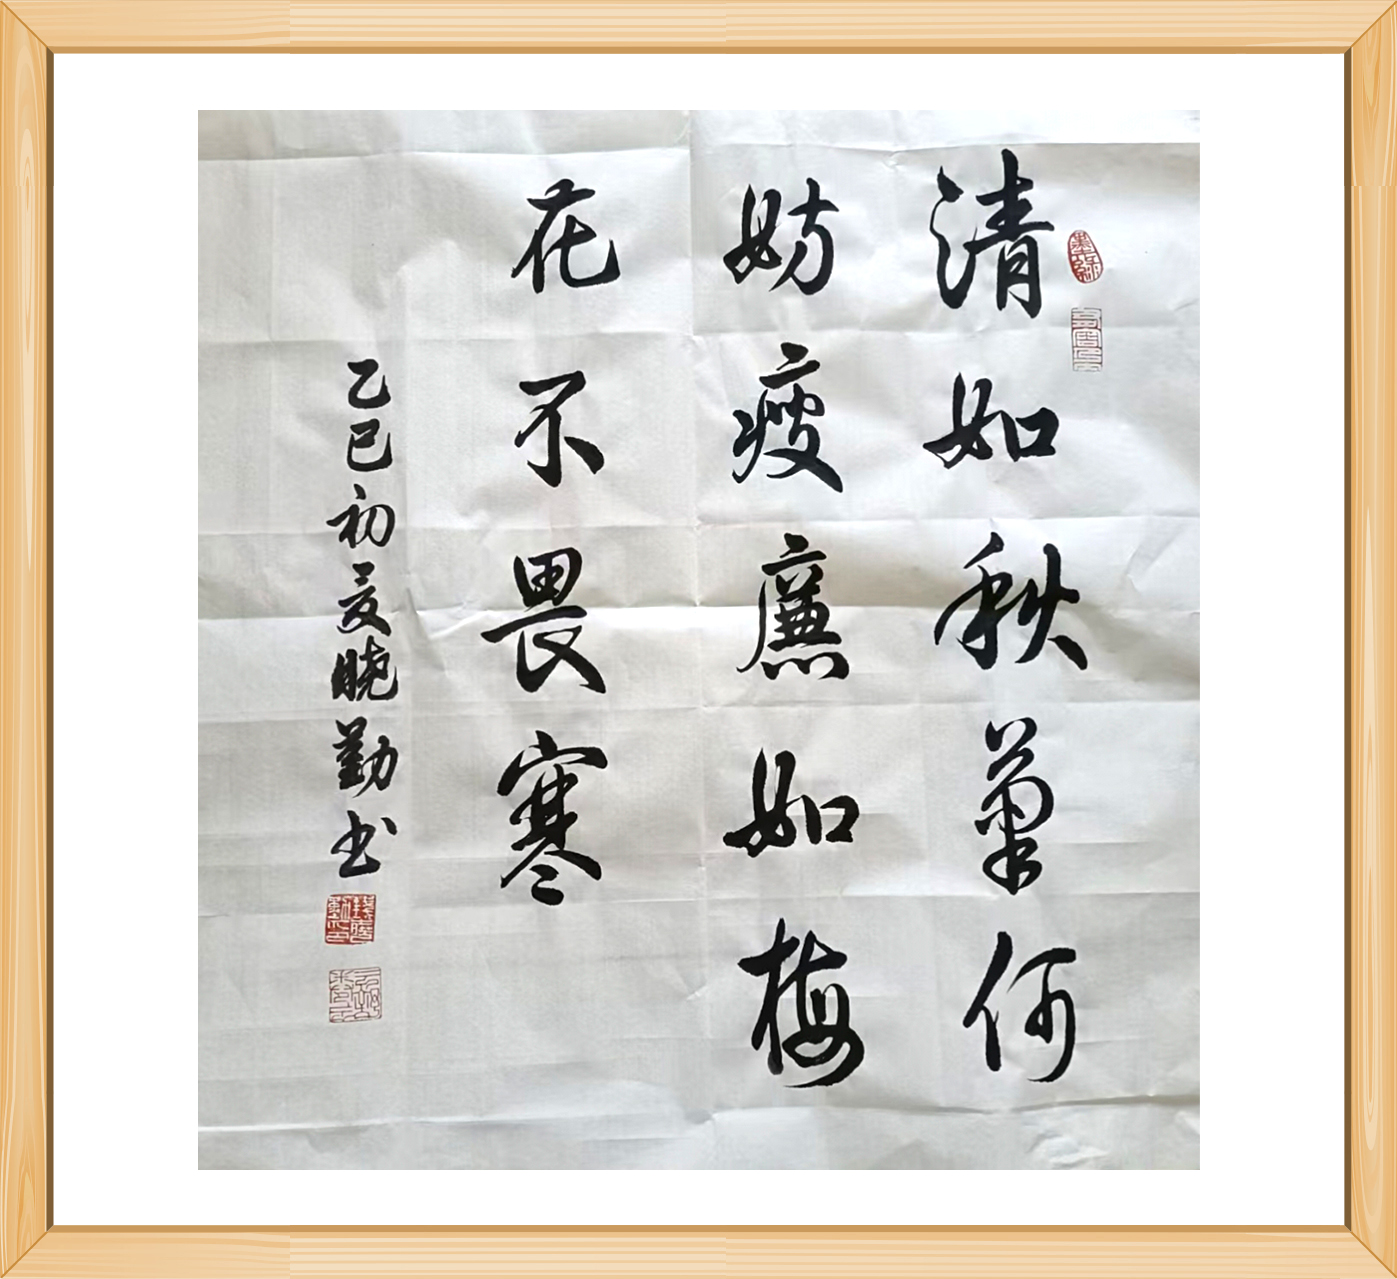 清如秋菊何
妨瘦廉如梅
花不畏寒
乙巳初夏晓勤书